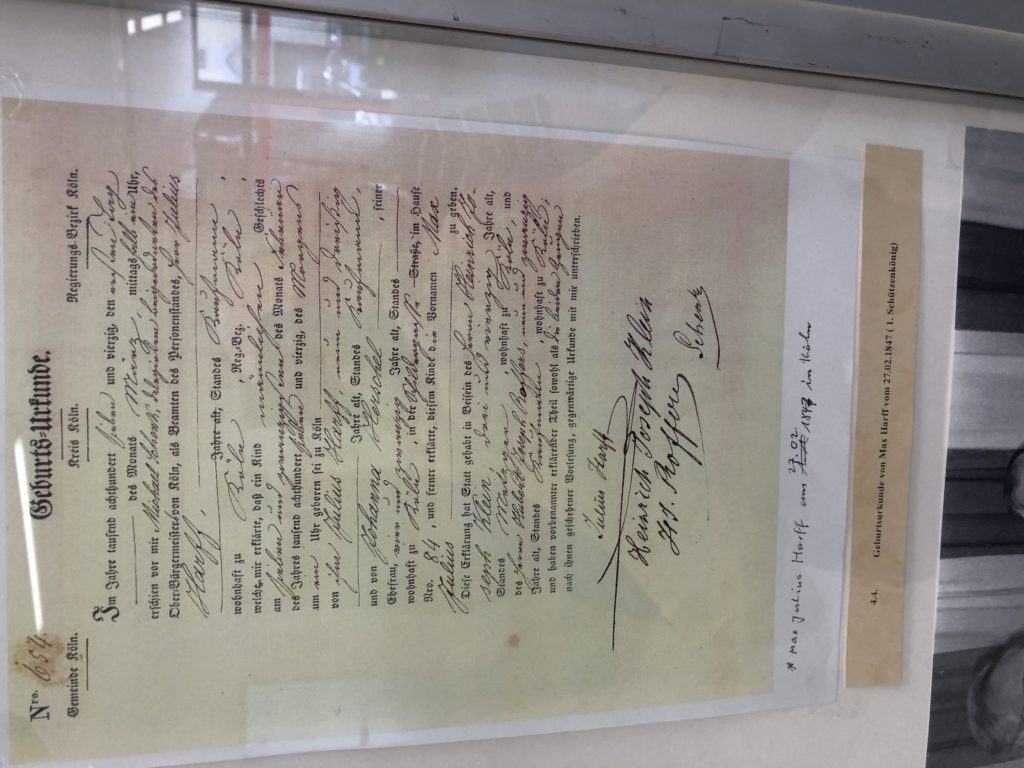 Nro. 654. Geburts-Urkunde.
Gemeinde Köln. Kreis Köln. Regierungs-Bezirk Köln.
Im Jahre tausend achthundert sieben und vierzig, den ersten
des Monats März, mittags halb ein Uhr,
erschien vor mir Michael Schenk, delegirten Beigeordneten des
Ober-Bürgermeisters von Köln, als Beamten des Personenstandes, Herr Julius
Harff,
Jahre alt, Standes Kaufmann,
wohnhaft zu Köln, Reg.-Bez. Köln,
welcher mir erklärte, daß ein Kind männlichen Geschlechts
am sieben und zwanzigsten des Monats Februar
des Jahres tausend achthundert sieben und vierzig, des Morgens
um ein Uhr geboren sei zu Köln
von ihm Julius Harff, ein und dreißig
Jahre alt, Standes Kaufmann,
und von Johanna Herschel, seiner
Ehefrau, vier und zwanzig Jahre alt, Standes
wohnhaft zu Köln, in der Straße, im Hause
Nro. 84, und ferner erklärte, diesem Kinde die Vornamen Max
Julius zu geben.
Diese Erklärung hat Statt gehabt in Beisein des Herrn Heinrich Jo-
seph Klein, drei und vierzig Jahre alt,
Standes, wohnhaft zu Köln, und
des Herrn Joseph Roffers, ein und zwanzig
Jahre alt, Standes Kaufmann, wohnhaft zu Köln,
und haben vorbenannter erklärender Theil sowohl als die beiden Zeugen
nach ihnen geschehener Vorlesung, gegenwärtige Urkunde mit mir unterschrieben.
Julius Harff
Heinrich Joseph Klein
Jos. Roffers
Schenk
* Max Julius Harff am 27.02 1847 in Köln
4.4. Geburtsurkunde von Max Harff vom 27.02.1847 ( 1. Schützenkönig)